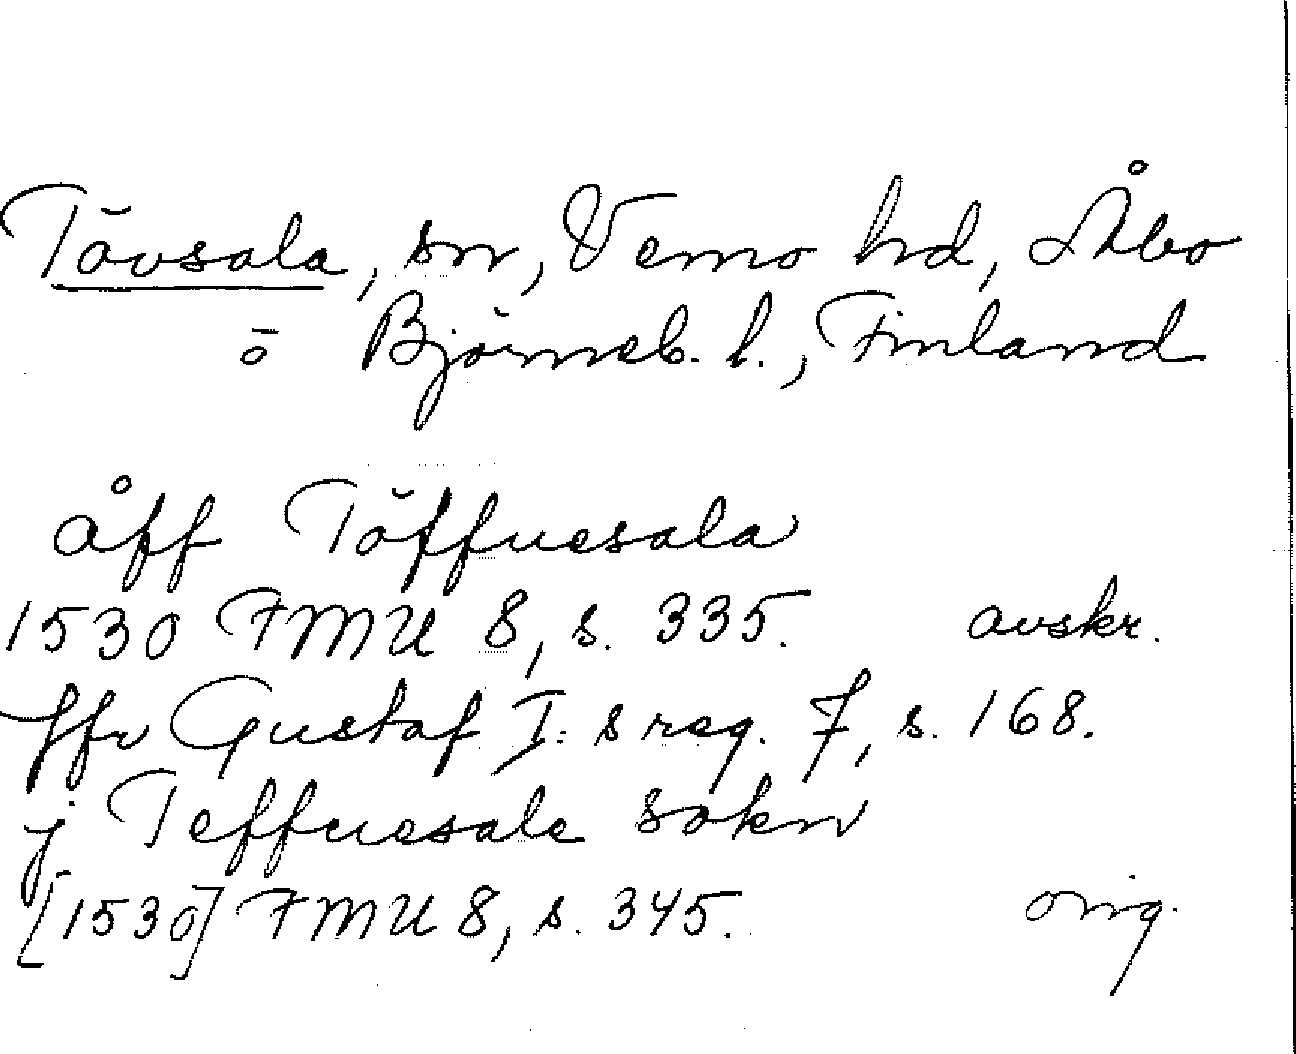 Tövsala, sn, Vemo hd, Åbo
o Björneb. l., Finland
åff Töffuesala
1530 FMU 8, s. 335. avskr.
jfr Gustaf I:s reg. 7, s. 168.
j Teffuesale sokn
[1530] FMU 8, s. 345. orig.